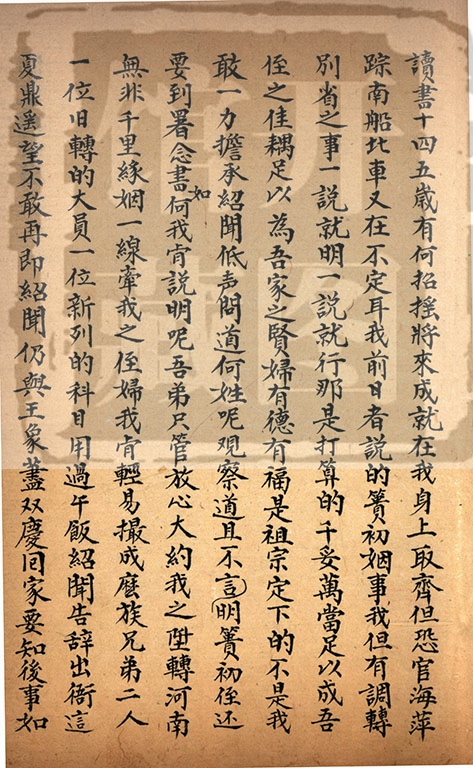 讀書十四五歲有何招搖將來成就在我身上取齊但恐官海萍
踪南船北車又在不定耳我前日者說的簣初姻事我但有調轉
別省之事一說就明一說就行那是打算的千妥萬當足以成吾
侄之佳耦足以為吾家之賢婦有德有福是祖宗定下的不是我
敢一力擔承紹聞低声問道何姓呢观察道且不言明簣初侄还
要到署念書如何我肯說明呢吾弟只管放心大約我之陞轉河南
無非千里緣姻一線牽我之侄婦我肯輕易撮成麽族兄弟二人
一位旧轉的大員一位新列的科目用過午飯紹聞告辞出衙這
夏鼎遥望不敢再即紹聞仍與王象藎双慶回家要知後事如